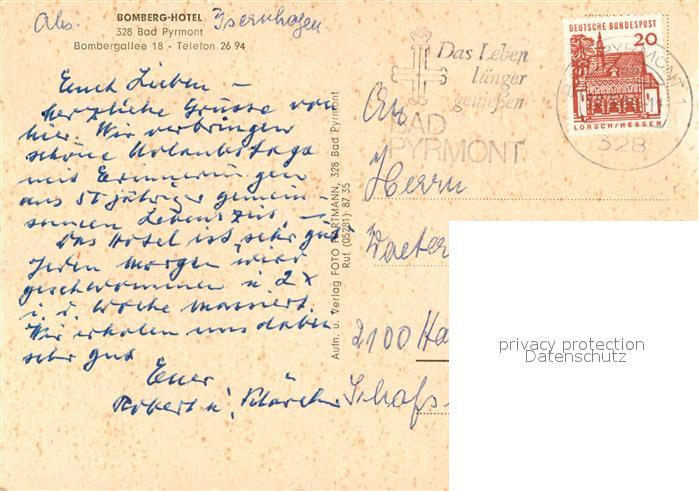 Abs. Isernhagen
BOMBERG-HOTEL
328 Bad Pyrmont
Bombergallee 18 - Telefon 26 94
Euch Lieben –
herzliche Grüsse von
hier. Wir verbringen
schöne Urlaubstage
mit Erinnerungen
aus 50 jähriger gemein-
samen Lebenszeit. –
Das Hotel ist sehr gut,
jeden Morgen wird
geschwommen u. 2 x
i. d. Woche massiert.
Wir erholen uns dabei
sehr gut
Euer
Robert u. Klärchen
Aufn. u. Verlag FOTO HARTMANN, 328 Bad Pyrmont
Ruf (05281) 87 35
Das Leben
länger
genießen
BAD
PYRMONT
DEUTSCHE BUNDESPOST
20
LORSCH/HESSEN
PYRMONT 1
328
An
Herrn
Walter
2100 Ha
Schafs
privacy protection
Datenschutz